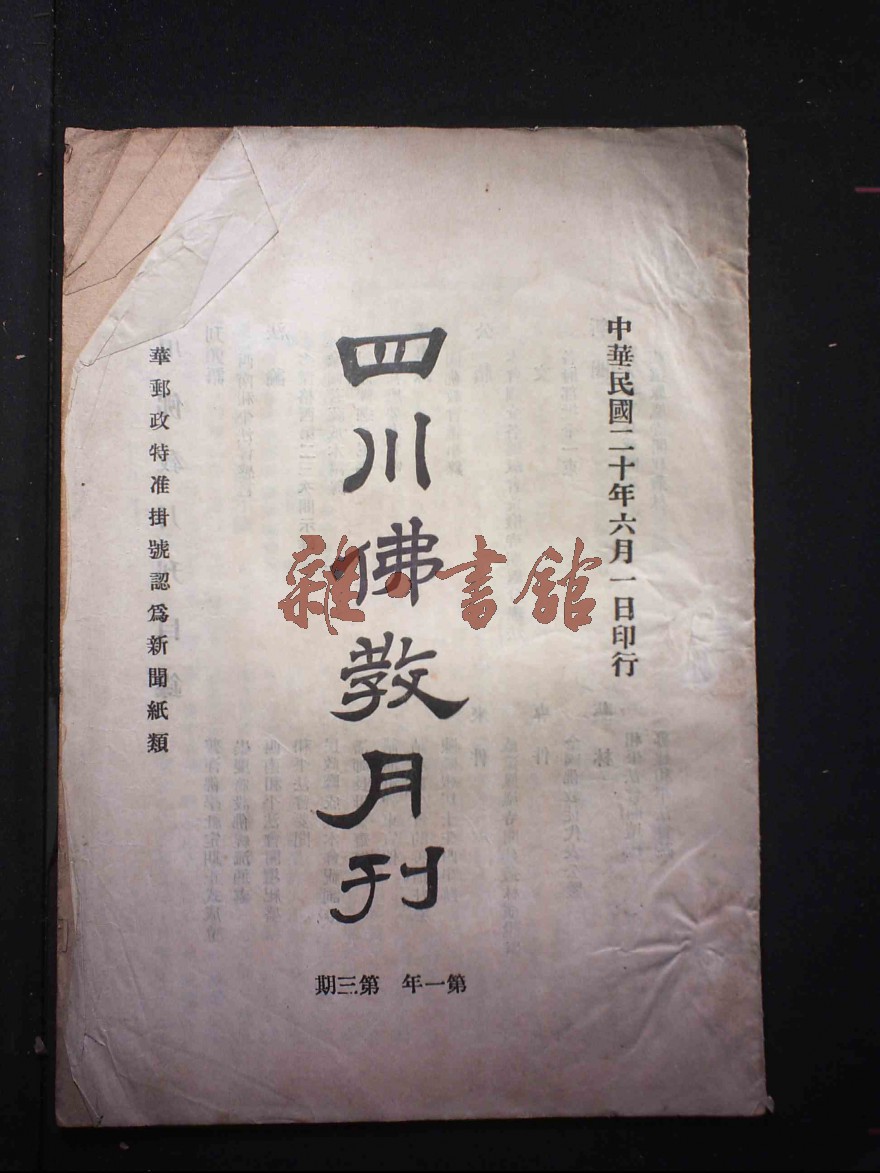 中華民國二十年六月一日印行
四川佛教月刊
第一年 第三期
華郵政特准掛號認爲新聞紙類
雜·書館